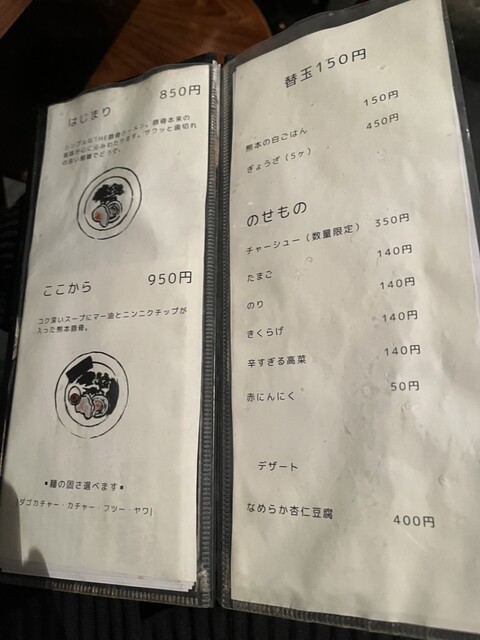 はじまり 850円
シンプルなTHE豚骨ラーメン。豚骨本来の
旨味が心に沁みわたります。サクッと歯切れ
の良い細麺でどうぞ。
ここから 950円
コク深いスープにマー油とニンニクチップが
入った熊本豚骨。
▪麺の固さ選べます▪
|ダゴカチャー・カチャー・フツー・ヤワ|
替玉150円
熊本の白ごはん 150円
ぎょうざ(5ヶ) 450円
のせもの
チャーシュー(数量限定) 350円
たまご 140円
のり 140円
きくらげ 140円
辛すぎる高菜 140円
赤にんにく 50円
デザート
なめらか杏仁豆腐 400円